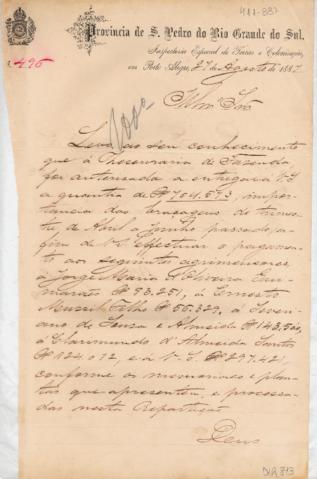 411-887
Provincia de S. Pedro do Rio Grande do Sul.
Inspectoria Especial de Terras e Colonisação,
496
em Porto Alegre, 27 de Agosto de 1887
Illmo Snr
Levo ao seu conhecimento
que á Thesouraria de Fazenda
foi autorisada a entregar a V. S.
a quantia de 704.593, impor-
tancia das braçagens do trimes-
tre, de Abril a Junho passado, a-
fim de V. S. effectuar o pagamento
aos seguintes agrimensores
á Jorge Maria d'Oliveira Gui-
marães 93.251, á Ernesto
Filho 55.329, á Severi-
ano de Souza e Almeida 143.560,
á Clarimundo d'Almeida Santos
e a V. S.
conforme os memoriaes e plan-
tas que apresentou, e processa-
das nesta Repartição
Deus
DIR 873